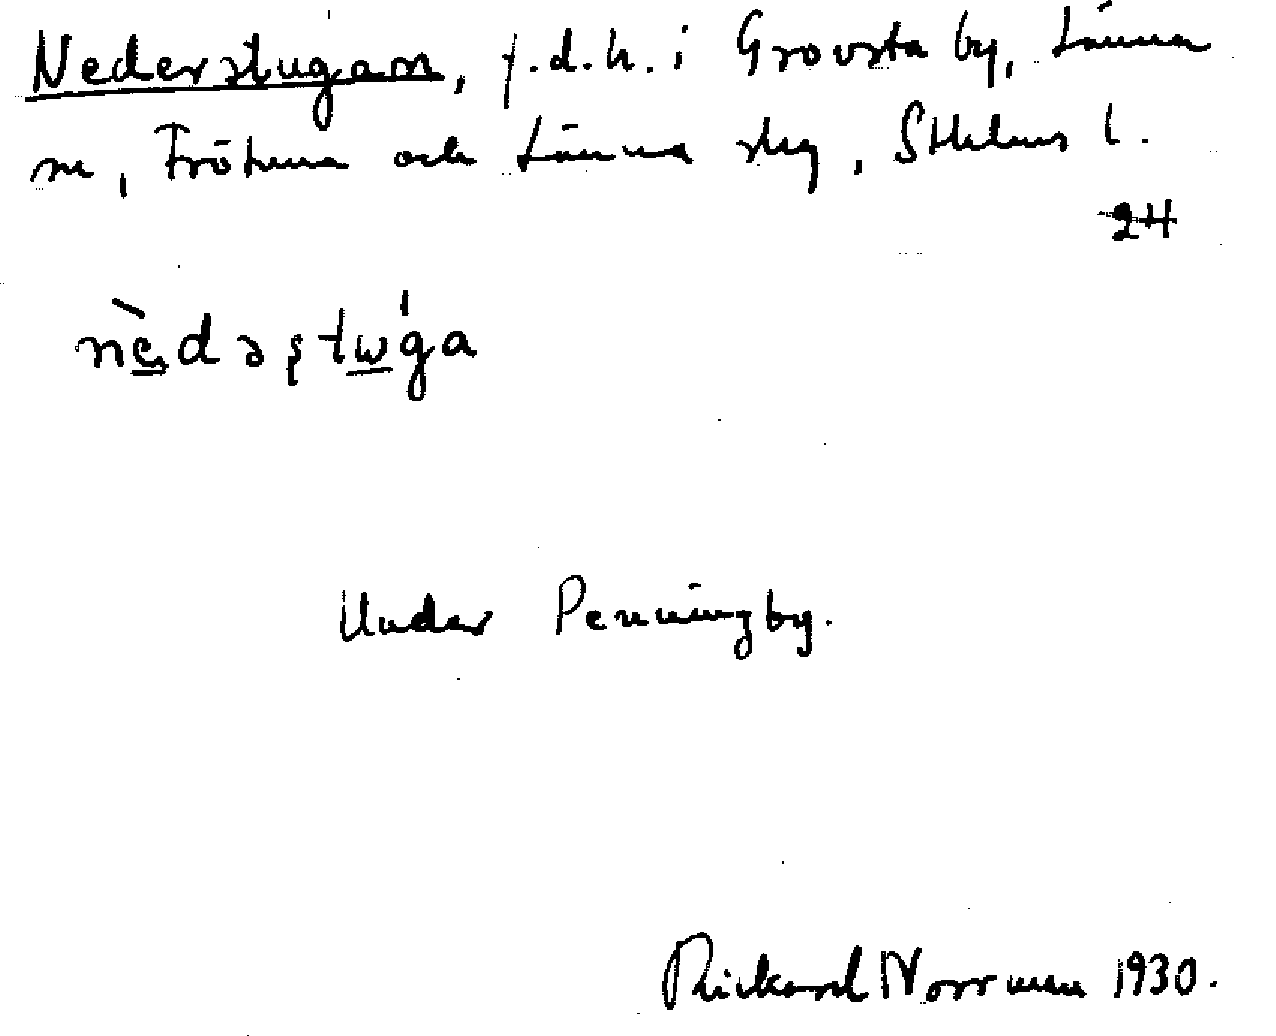 Nederstugan, f.d.h. i Grovsta by, Länna
sn, Frötuna och Länna skg, Sthlms l.
24
nèdəștẉga
Under Penningby.
Rickard Norrman 1930.